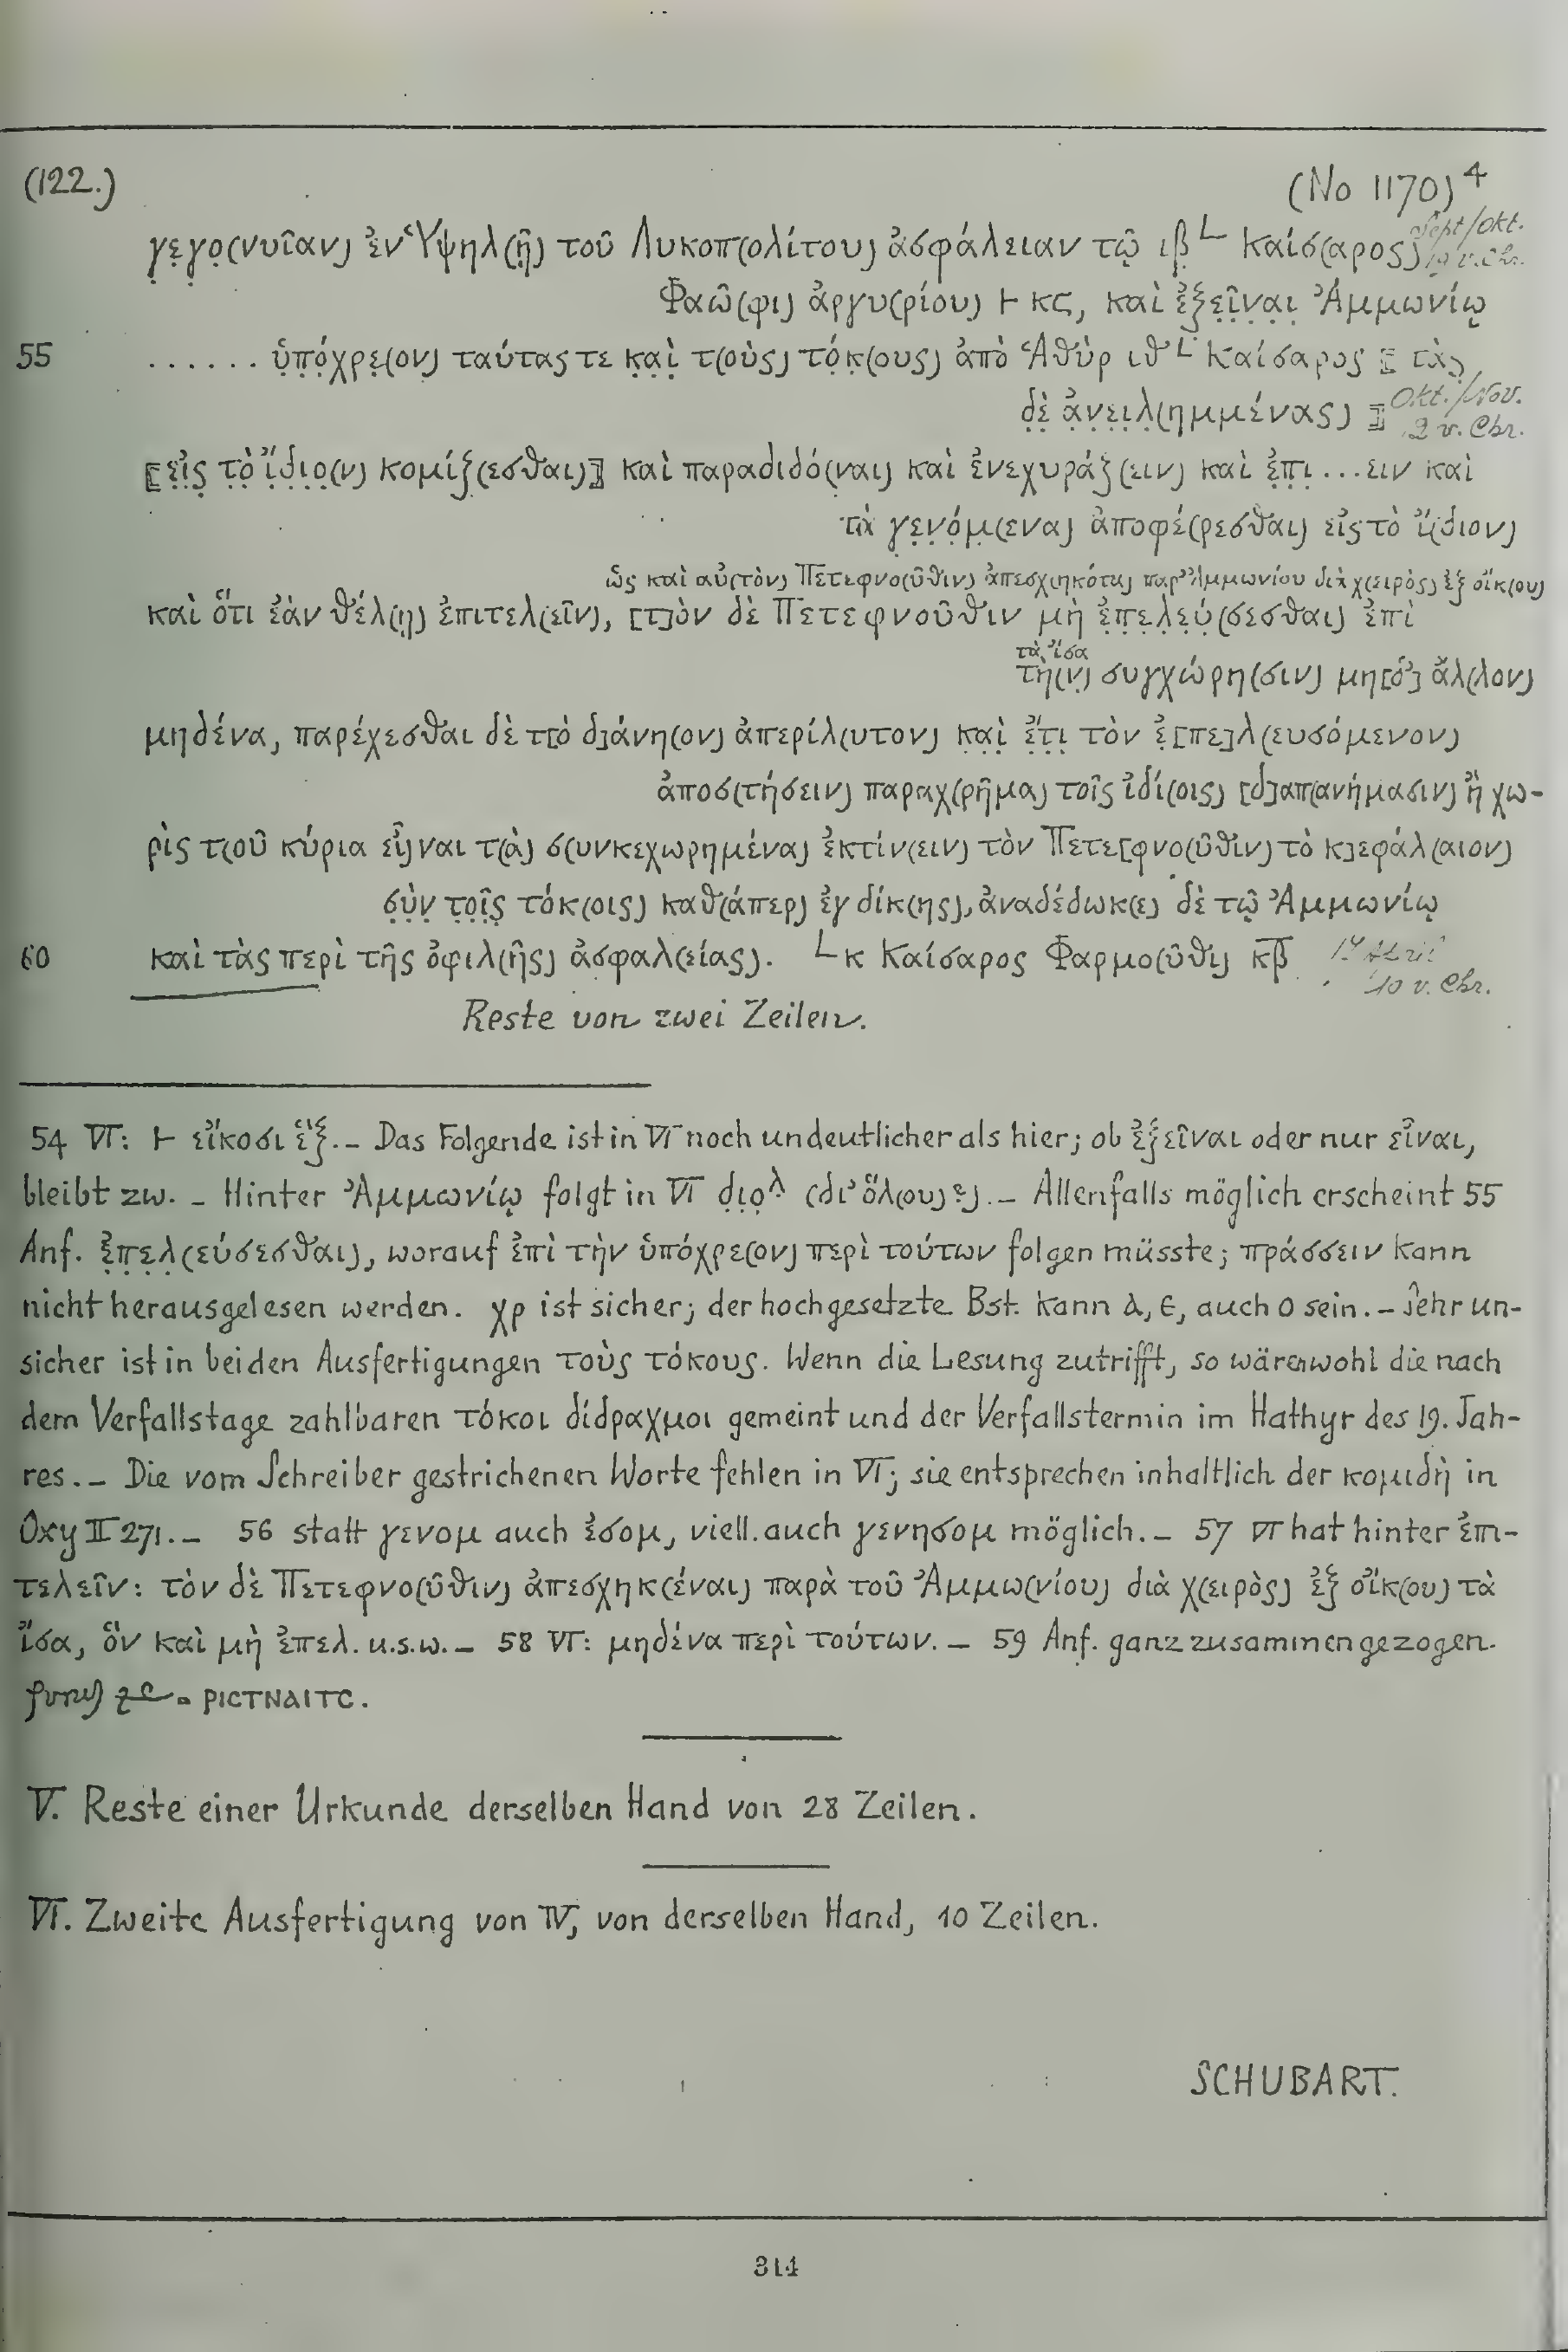 (122.) (No 1170)⁴
γε̣γο̣(νυῖαν) ἐν Ὑψηλ(ῇ) τοῦ Λυκοπ(ολίτου) ἀσφάλειαν τῷ ιβ L Καίσ(αρος) Sept/Okt. v. Chr.
Φαῶ(φι) ἀργυ(ρίου) 𐅂 κϛ, καὶ ἐξε̣ῖ̣ν̣α̣ι̣ Ἀμμωνίῳ
55 ...... ὑ̣π̣ό̣χρε̣(ον) ταύτας τε κ̣α̣ὶ̣ τ(οὺς) τό̣κ̣(ους) ἀπὸ Ἁθὺρ ιθ L Καίσαρος ⟦τὰς̣
δ̣ὲ̣ ἀ̣ν̣ε̣ι̣λ̣(ημμένας)⟧ Okt./Nov. v. Chr.
⟦ε̣ἰ̣ς̣ τ̣ὸ̣ ἴ̣δ̣ι̣ο̣(ν) κομίζ(εσθαι)⟧ καὶ παραδιδό(ναι) καὶ ἐνεχυράζ(ειν) καὶ ἐ̣π̣ι̣...ειν καὶ
τὰ γ̣ε̣ν̣ό̣μ̣(ενα) ἀποφέ(ρεσθαι) εἰς τὸ ἴ(διον)
ὡς καὶ αὐ(τὸν) Πετεφνο(ῦθιν) ἀπεσχ(ηκότα) παρ' Ἀμμωνίου διὰ χ(ειρὸς) ἐξ οἴκ(ου)
καὶ ὅτι ἐὰν θέλ(ῃ) ἐπιτελ(εῖν), [τ]ὸν δὲ Πετεφνοῦθιν μὴ ἐ̣π̣ε̣λ̣ε̣ύ̣(σεσθαι) ἐπὶ
τὰ ἴσα
τὴ(ν̣) συγχώρη(σιν) μη[δ'] ἄλ(λον)
μηδένα, παρέχεσθαι δὲ τ[ὸ δ]άνη(ον) ἀπερίλ(υτον) κ̣α̣ὶ̣ ἔ̣τ̣ι̣ τὸν ἐ̣[πε]λ(ευσόμενον)
ἀποσ(τήσειν) παραχ(ρῆμα) τοῖς ἰδί(οις) [δ]απ(ανήμασιν) ἢ χω-
ρὶς τ(οῦ κύρια εἶ)ναι τ(ὰ) σ(υνκεχωρημένα) ἐκτίν(ειν) τὸν Πετε[φνο(ῦθιν) τὸ κ]εφάλ(αιον)
σ̣ὺ̣ν̣ τ̣ο̣ῖ̣ς̣ τόκ(οις) καθ(άπερ) ἐγ δίκ(ης), ἀναδέδωκ(ε) δὲ τῷ Ἀμμωνίῳ
60 καὶ τὰς περὶ τῆς ὀφιλ(ῆς) ἀσφαλ(είας). L κ Καίσαρος Φαρμο(ῦθι) κβ̅ 10 v. Chr.
Reste von zwei Zeilen.
54 VI: 𐅂 εἴκοσι ἕξ. – Das Folgende ist in VI noch undeutlicher als hier; ob ἐξεῖναι oder nur εἶναι,
bleibt zw. – Hinter Ἀμμωνίῳ folgt in VI δ̣ι̣ο̣λ (δι' ὅλ(ου)?). – Allenfalls möglich erscheint 55
Anf. ἐ̣π̣ε̣λ̣(εύσεσθαι), worauf ἐπὶ τὴν ὑπόχρε(ον) περὶ τούτων folgen müsste; πράσσειν kann
nicht herausgelesen werden. χρ ist sicher; der hochgesetzte Bst. kann λ, ε, auch ο sein. – Sehr un-
sicher ist in beiden Ausfertigungen τοὺς τόκους. Wenn die Lesung zutrifft, so wären wohl die nach
dem Verfallstage zahlbaren τόκοι δίδραχμοι gemeint und der Verfallstermin im Hathyr des 19. Jah-
res. – Die vom Schreiber gestrichenen Worte fehlen in VI; sie entsprechen inhaltlich der κομιδὴ in
Oxy II 271. – 56 statt γενομ auch ἐσομ, viell. auch γενησομ möglich. – 57 VI hat hinter ἐπι-
τελεῖν: τὸν δὲ Πετεφνο(ῦθιν) ἀπεσχηκ(έναι) παρὰ τοῦ Ἀμμω(νίου) διὰ χ(ειρὸς) ἐξ οἴκ(ου) τὰ
ἴσα, ὃν καὶ μὴ ἐπελ. u.s.w. – 58 VI: μηδένα περὶ τούτων. – 59 Anf. ganz zusammengezogen.
= ΡΙCΤΝΑΙΤC.
V. Reste einer Urkunde derselben Hand von 28 Zeilen.
VI. Zweite Ausfertigung von IV, von derselben Hand, 10 Zeilen.
SCHUBART.
314